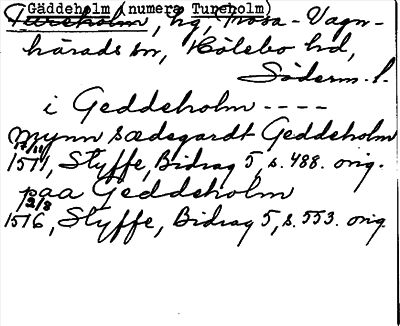 Gäddeholm (numera Tureholm)
Tureholm, hg, Trosa-Vagn-
härads sn, Hölebo hd,
Söderm. l.
i Geddeholm ----
mynn sædegardt Geddeholm
17/11
1511, Styffe, Bidrag 5, s. 488. orig.
paa Geddeholm
2/8
1516, Styffe, Bidrag 5, s. 553. orig.